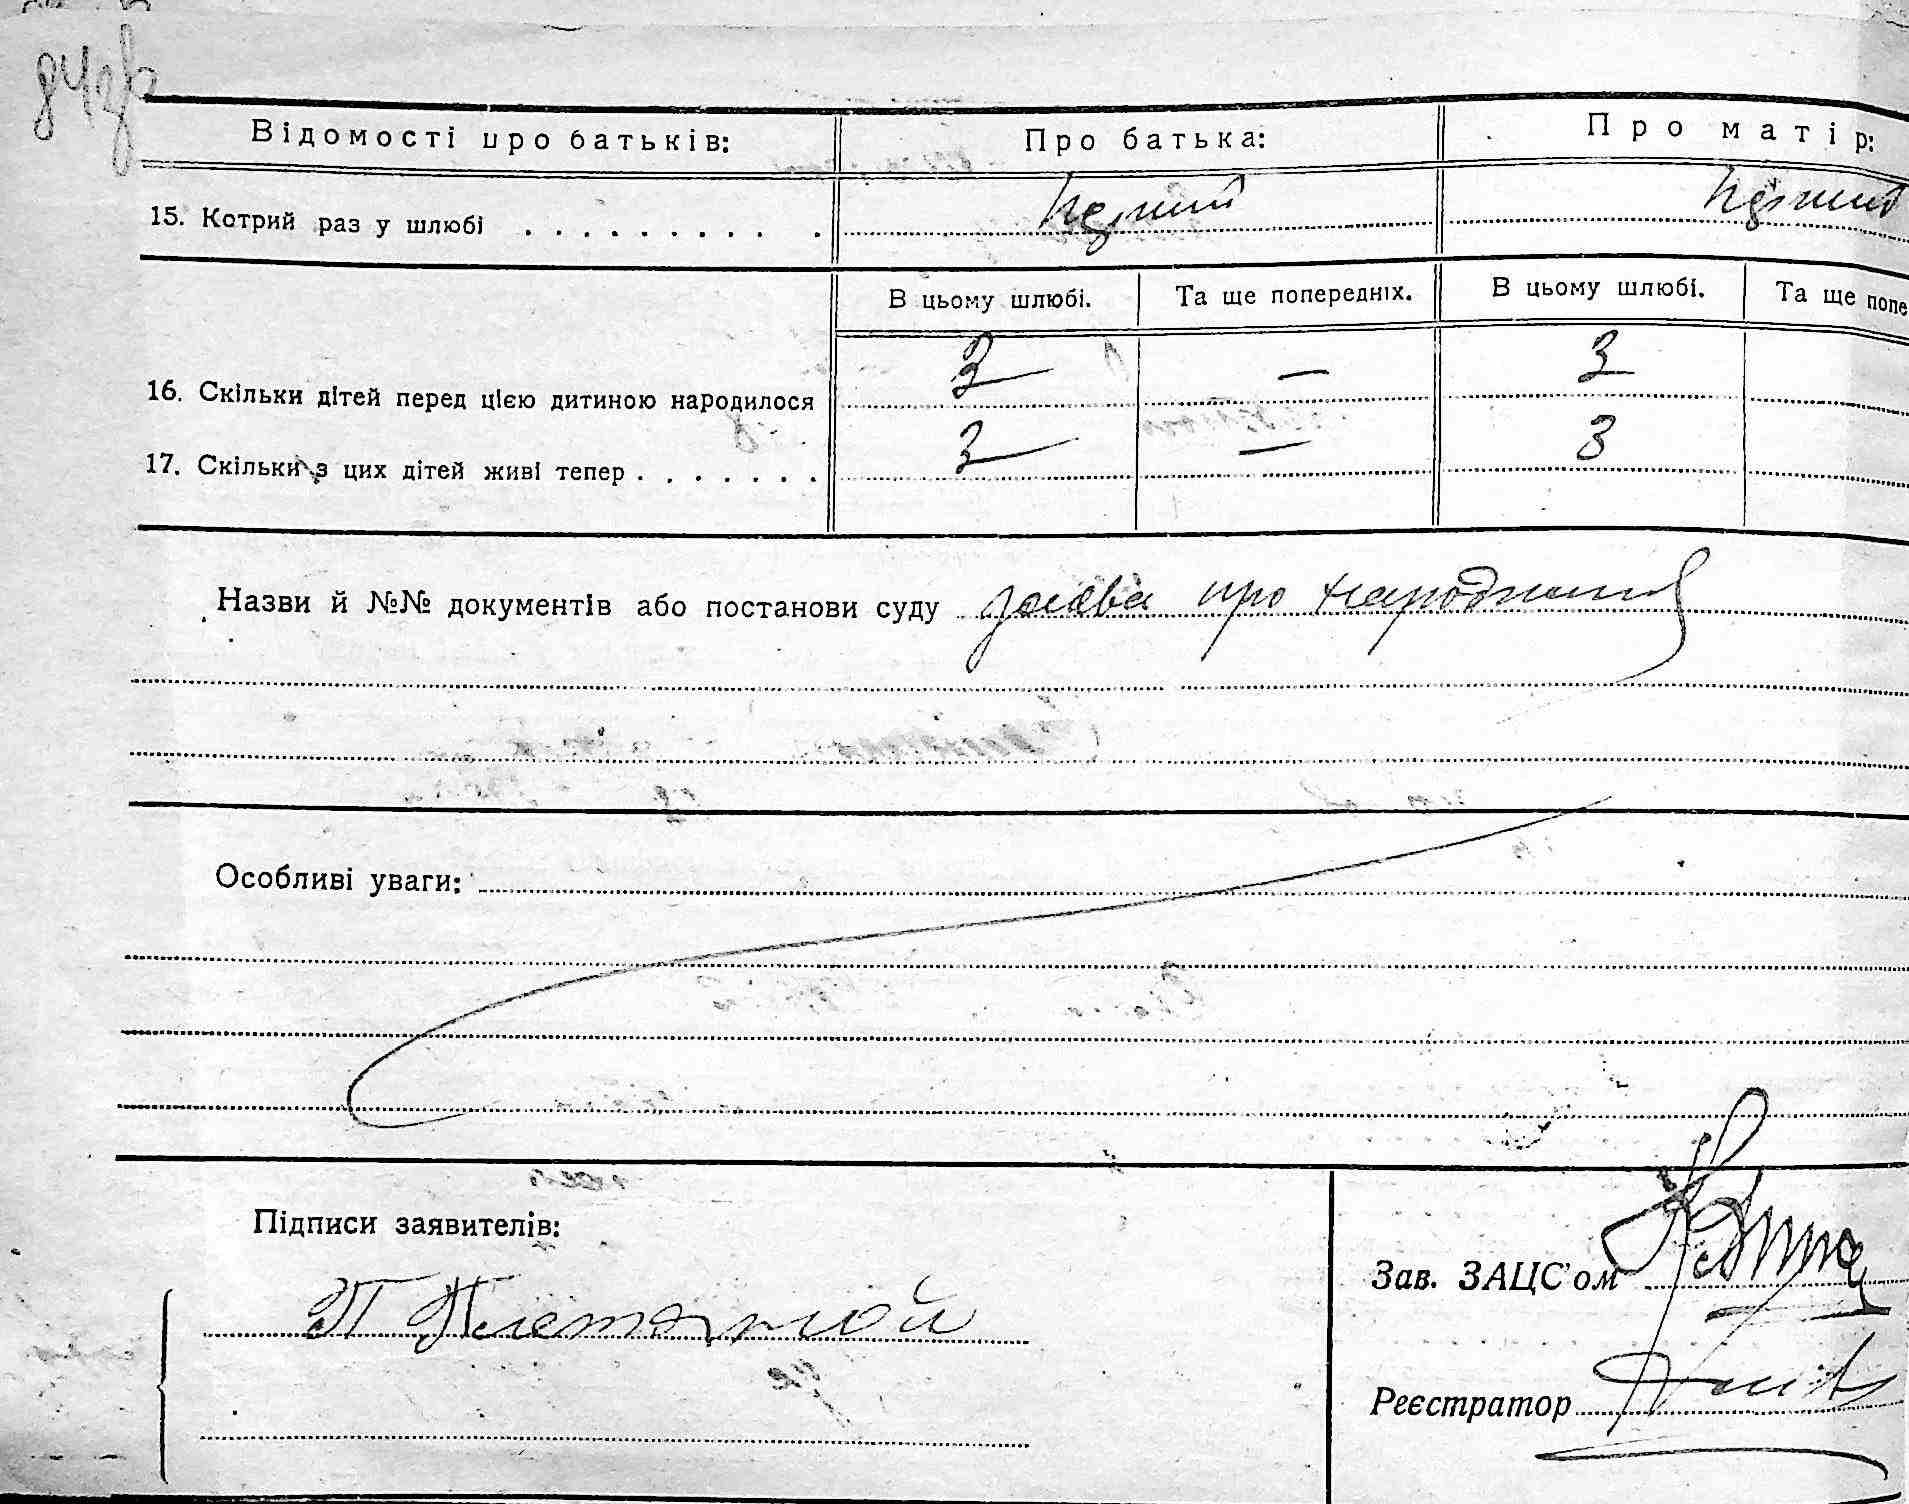 Відомості про батьків: Про батька: Про матір:
15. Котрий раз у шлюбі . . . . . . . . . . . перший перший
В цьому шлюбі. Та ще попередніх. В цьому шлюбі. Та ще попе
16. Скільки дітей перед цією дитиною народилося 3 — 3
17. Скільки з цих дітей живі тепер . . . . . . . 3 — 3
Назви й №№ документів або постанови суду заява про народження
Особливі уваги:
Підписи заявителів:
Зав. ЗАЦС'ом
П
Реєстратор